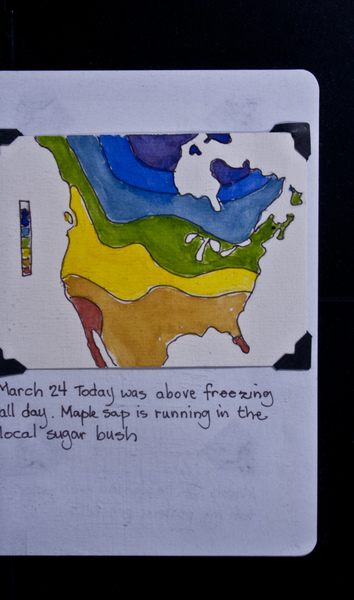 March 24 Today was above freezing
all day. Maple sap is running in the
local sugar bush